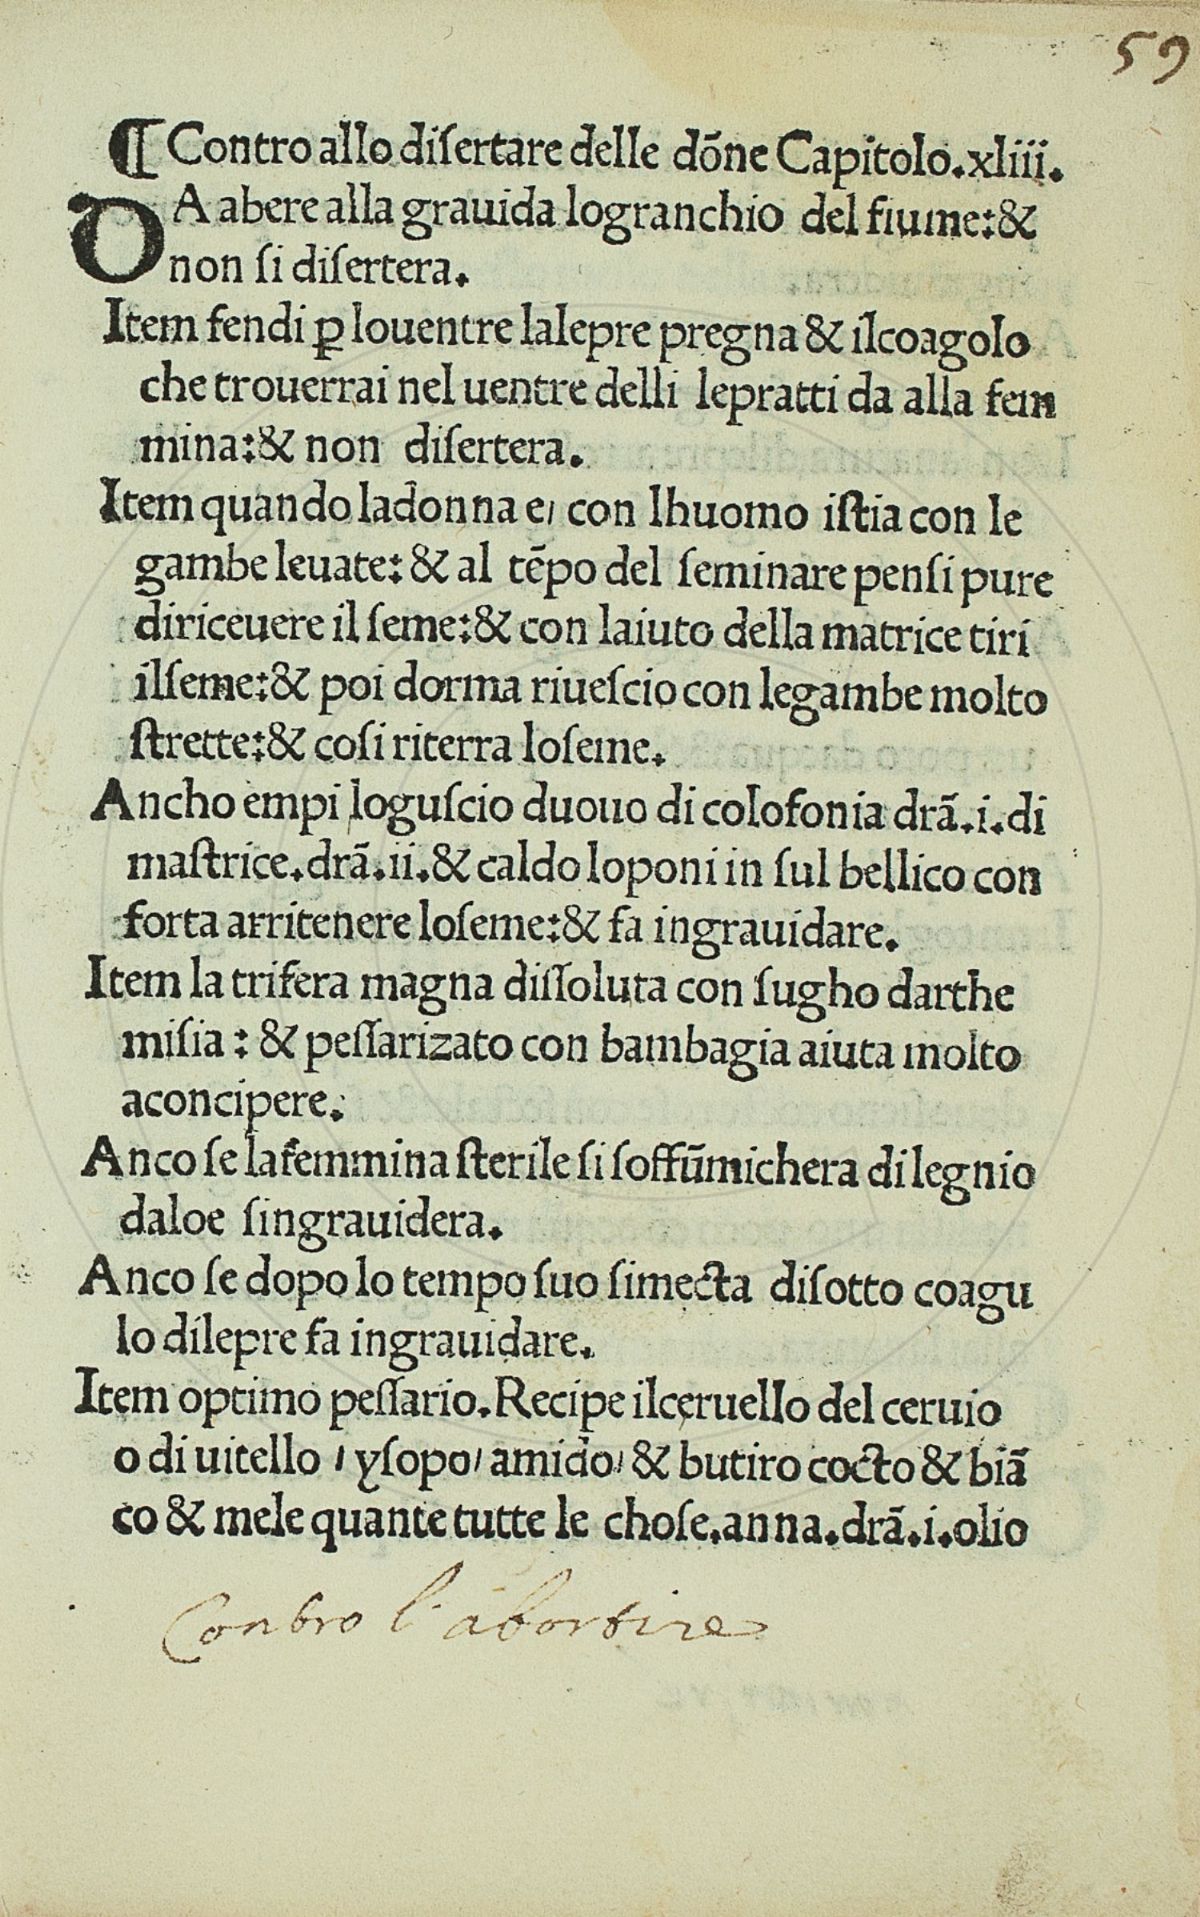 59
¶ Contro allo diſertare delle dōne Capitolo.xliii.
DA abere alla grauida logranchio del fiume:&
non ſi diſertera.
Item fendi ꝑ louentre lalepre pregna & ilcoagolo
che trouerrai nel uentre delli lepratti da alla fem
mina:& non diſertera.
Item quando ladonna e/ con lhuomo iſtia con le
gambe leuate:& al tēpo del ſeminare penſi pure
diriceuere il ſeme:& con laiuto della matrice tiri
ilſeme:& poi dorma riueſcio con legambe molto
ſtrette:& coſi riterra loſeme.
Ancho empi loguſcio duouo di colofonia drā.i.di
maſtrice.drā.ii.& caldo loponi in ſul bellico con
forta arritenere loſeme:& fa ingrauidare.
Item la trifera magna diſſoluta con ſugho darthe
miſia: & peſſarizato con bambagia aiuta molto
aconcipere.
Anco ſe lafemmina ſterile ſi ſoffūmichera di legnio
daloe ſingrauidera.
Anco ſe dopo lo tempo ſuo ſimecta diſotto coagu
lo dilepre fa ingrauidare.
Item optimo peſſario.Recipe ilceruello del ceruio
o di uitello / yſopo/ amido/ & butiro cocto & biā
co & mele quante tutte le choſe.anna.drā.i.olio
Contro l'abortire